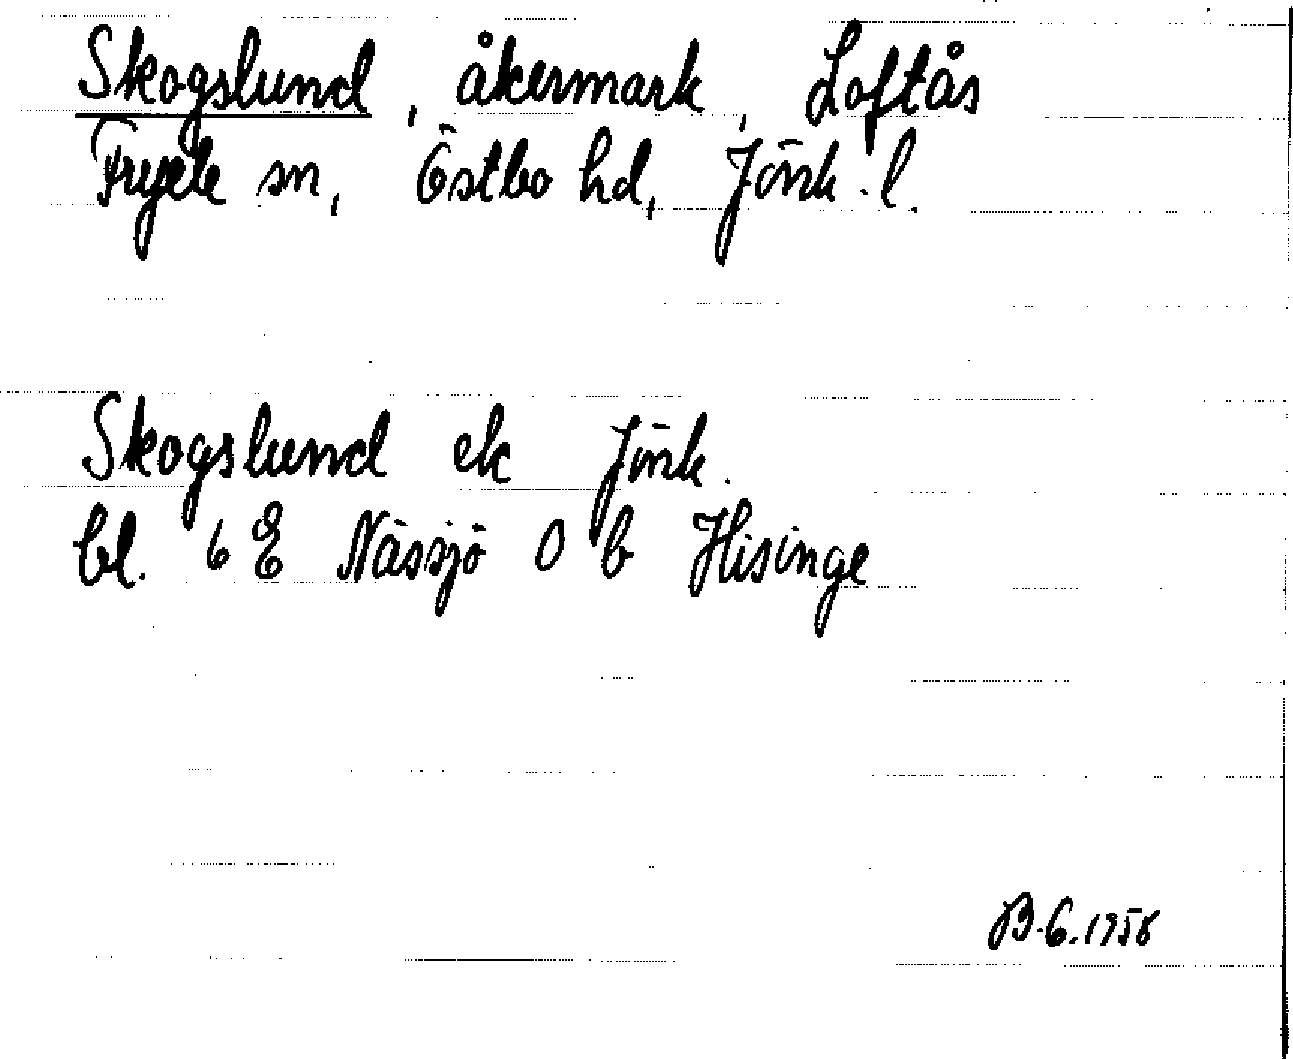 Skogslund, åkermark, Loftås
Fryele sn, Östbo hd, Jönk. l.
Skogslund ek Jönk.
bl. 6 E Nässjö 0 b Hisinge
B.G. 1958